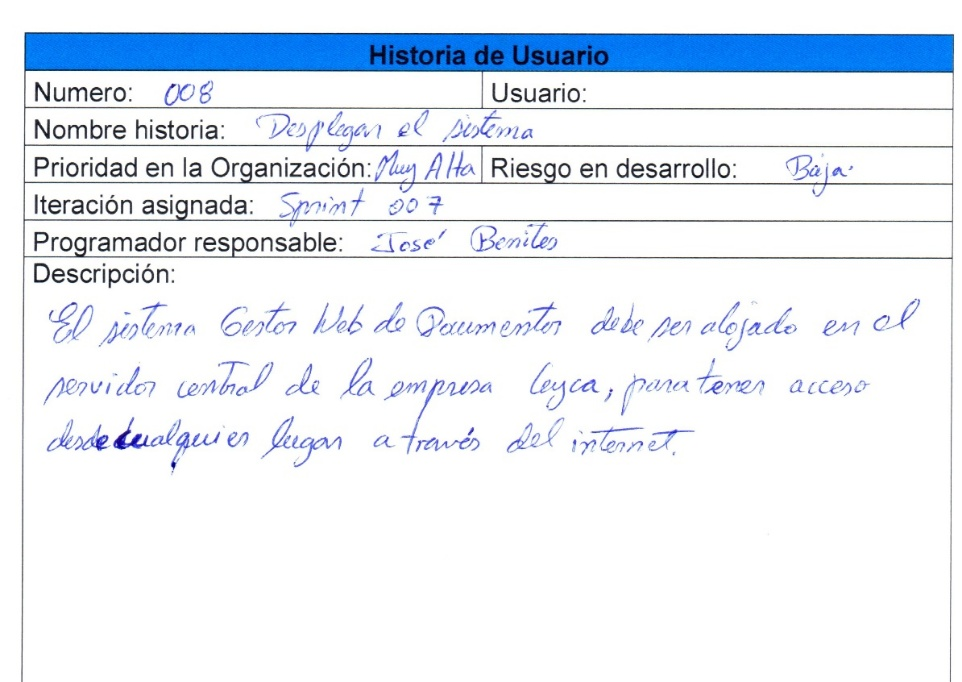 Historia de Usuario
Numero: 008 Usuario:
Nombre historia: Desplegar el sistema
Prioridad en la Organización: Muy Alta Riesgo en desarrollo: Baja.
Iteración asignada: Sprint 007
Programador responsable: José Benites
Descripción:
El sistema Gestor Web de Documentos debe ser alojado en el
servidor central de la empresa , para tener acceso
desde cualquier lugar a través del internet.